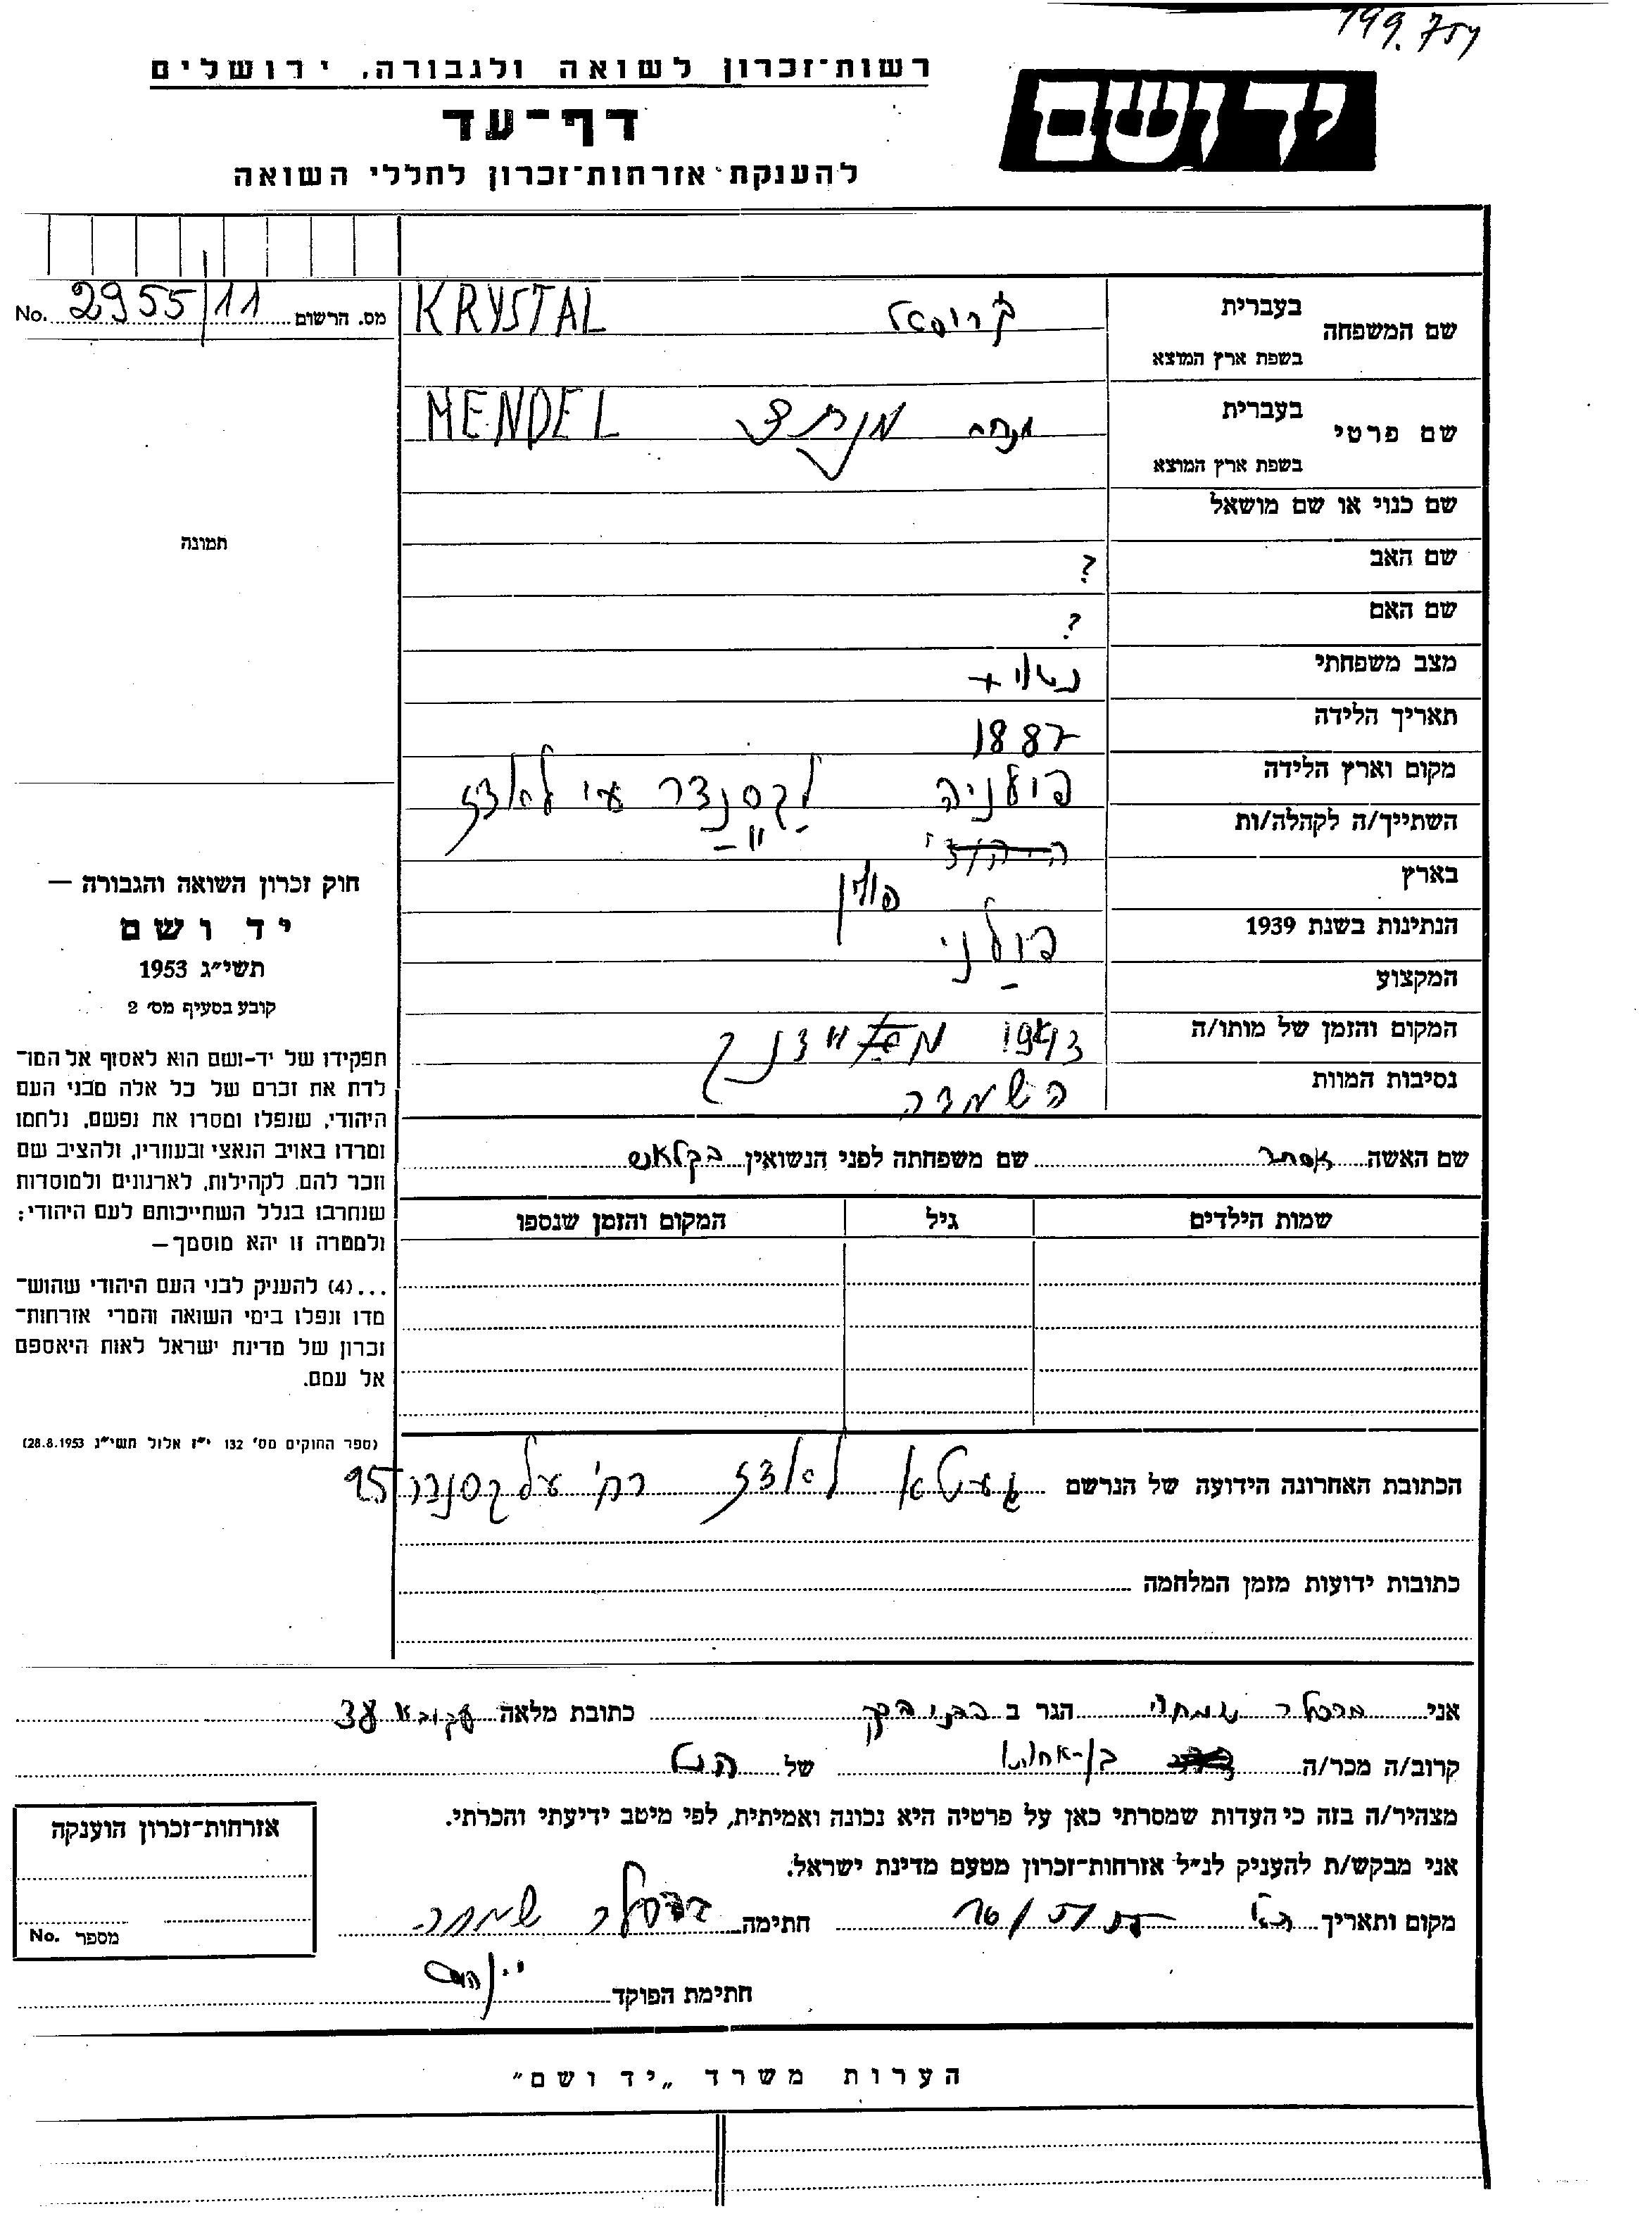 199.754
רשות־זכרון לשואה ולגבורה, ירושלים
דף־עד
להענקת אזרחות־זכרון לחללי השואה
יד ושם
מס. הרשום 2955/11 No.
שם המשפחה
בעברית
בשפת ארץ המוצא
KRYSTAL
שם פרטי
בעברית
בשפת ארץ המוצא
מנחם
MENDEL
שם כנוי או שם מושאל
שם האב ?
שם האם ?
מצב משפחתי נשוי +
תאריך הלידה 1887
מקום וארץ הלידה פולניה
השתייך/ה לקהלה/ות
בארץ פולין
הנתינות בשנת 1939 פולני
המקצוע –
המקום והזמן של מותו/ה 1943
נסיבות המוות השמדה
שם האשה אסתר שם משפחתה לפני הנשואין
שמות הילדים גיל המקום והזמן שנספו
תמונה
חוק זכרון השואה והגבורה —
יד ושם
תשי״ג 1953
קובע בסעיף מס׳ 2
תפקידו של יד-ושם הוא לאסוף אל המו־
לדת את זכרם של כל אלה מבני העם
היהודי, שנפלו ומסרו את נפשם, נלחמו
ומרדו באויב הנאצי ובעוזריו, ולהציב שם
וזכר להם, לקהילות, לארגונים ולמוסדות
שנחרבו בגלל השתייכותם לעם היהודי;
ולמטרה זו יהא מוסמך —
...(4) להעניק לבני העם היהודי שהוש־
מדו ונפלו בימי השואה והמרי אזרחות־
זכרון של מדינת ישראל לאות היאספם
אל עמם.
(ספר החוקים מס׳ 132 י״ז אלול תשי״ג 28.8.1953)
הכתובת האחרונה הידועה של הנרשם געטא לאדז רח׳ אלכסנדר 25
כתובות ידועות מזמן המלחמה
אני שמחה הגר ב בני ברק כתובת מלאה עקיבא
קרוב/ה מכר/ה בן-אחותו של
מצהיר/ה בזה כי העדות שמסרתי כאן על פרטיה היא נכונה ואמיתית, לפי מיטב ידיעתי והכרתי.
אני מבקש/ת להעניק לנ״ל אזרחות־זכרון מטעם מדינת ישראל.
מקום ותאריך חתימה שמחה
חתימת הפוקד
אזרחות־זכרון הוענקה
מספר No.
הערות משרד „יד ושם"